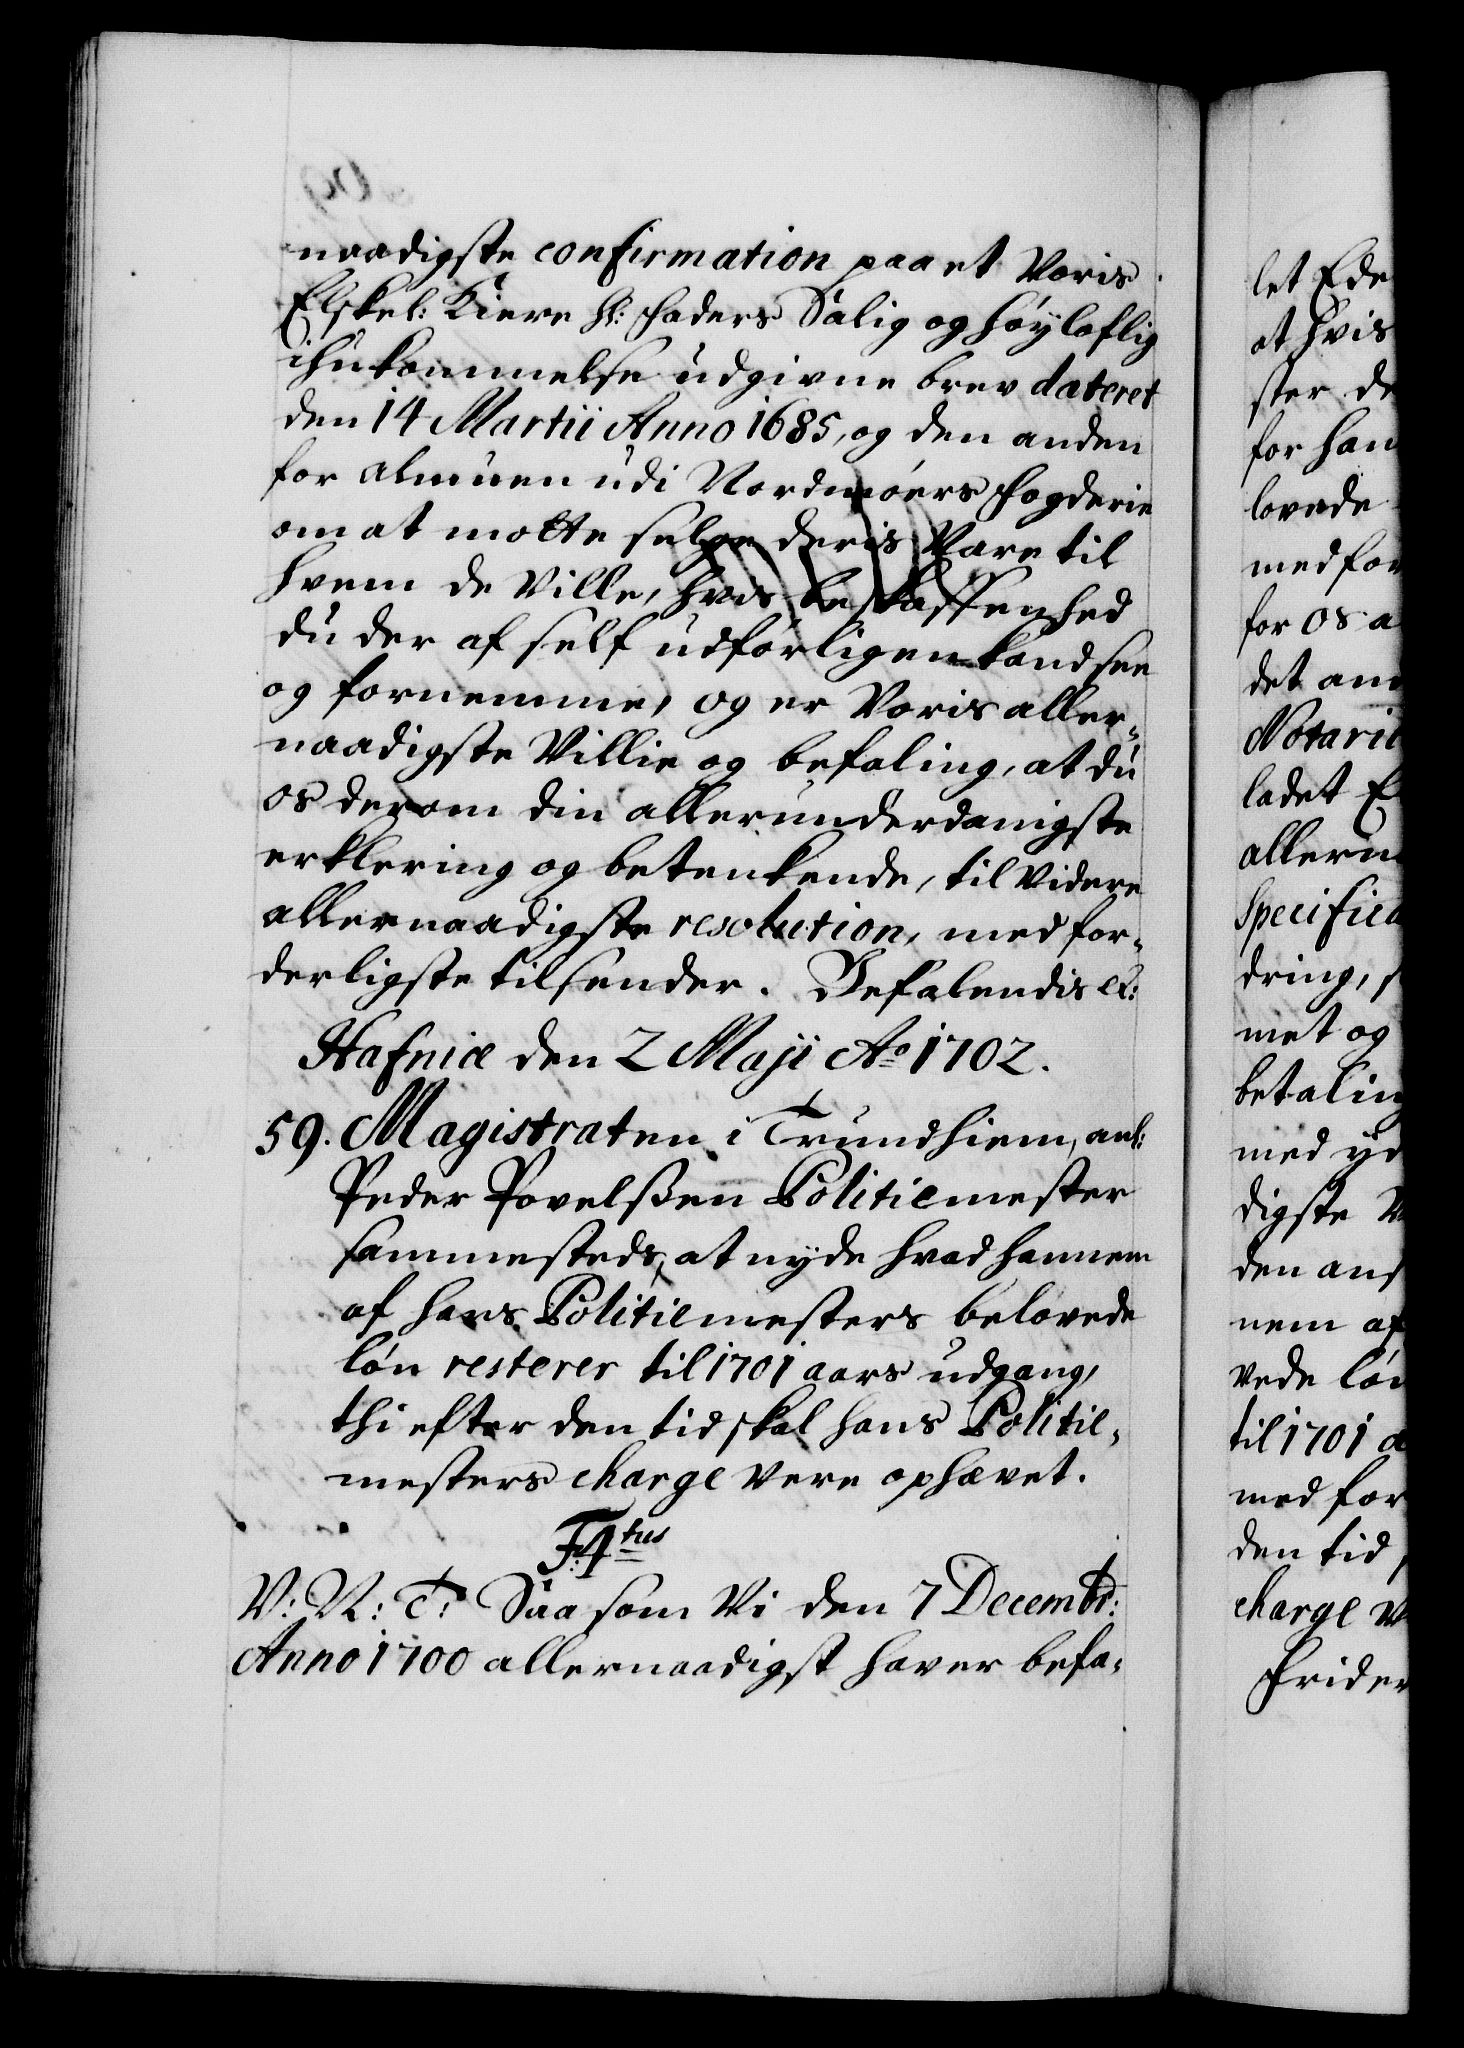 naadigste confirmation paa et Voris
Elskel: Kiere H: Faders Salig og høyloflig
ihukommelse udgivne brev dateret
den 14 Martii Anno 1685, og den anden
for almuen udi Nordmøers Fogderie
om at motte selge deris Vare til
hvem de Ville, hvis beskaffenhed
du der af self udførligen kand see
og fornemme, og er Voris aller-
naadigste Villie og befaling, at du
os derom din allerunderdanigste
erklering og betenkende, til Videre
allernaadigste resolution, med for-
derligste tilsender. Befalendis etc:
Hafniæ den 2 Maji Ao 1702.
59. Magistraten i Trundhiem, anl:
Peder Povelssen Politiemester
sammesteds, at nyde hvad hannem
af hans Politiemesters belovede
løn resterer til 1701 aars udgang,
thi efter den tid skal hans Politie-
mesters charge Vere ophævet.
F: 4tus
V: N: T: Saa som Vi den 7 Decembr:
Anno 1700 allernaadigst haver befa-
let Ede
at hvis
ster de
for han
lovede
med for
for os a
det an
Notarii
ladet E
allerun
Specifica
dring, s
met og
betaling
med yd
digste V
den ans
nem af
vede løn
til 1701 a
med for
den tid
charge V
Frider